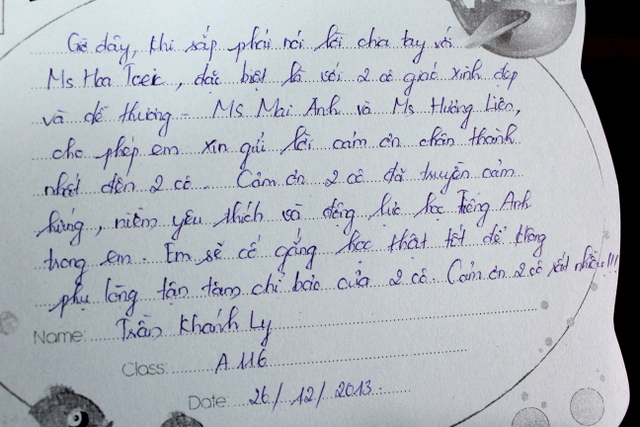 Giờ đây, khi sắp phải nói lời chia tay với
Ms Hoa Toeic, đặc biệt là với 2 cô giáo xinh đẹp
và dễ thương - Ms Mai Anh và Ms Hương Liên,
cho phép em xin gửi lời cảm ơn chân thành
nhất đến 2 cô. Cảm ơn 2 cô đã truyền cảm
hứng, niềm yêu thích và động lực học Tiếng Anh
trong em. Em sẽ cố gắng học thật tốt để không
phụ lòng tận tâm chỉ bảo của 2 cô. Cảm ơn 2 cô rất nhiều!!!
Name: Trần Khánh Ly
Class: A116
Date: 26/12/2013.